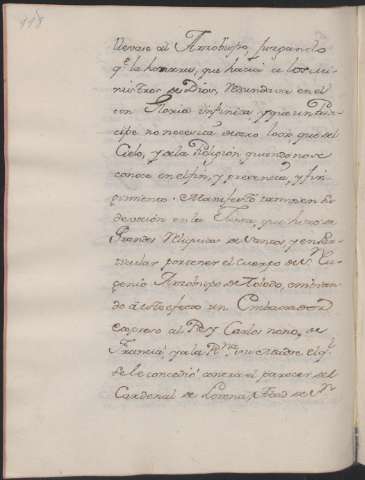 118
llevase al Arzobispo, juzgando
q.e la honrra, que hacia a los Mi-
nistros de Dios, redundava en el
con Gloria infinita, y que un Prin-
cipe no necesita de otro loor que del
Cielo, y de la Religión quando no se
conoce en el fin, y presencia, y fin-
gimiento. Manifestó tambien su
devoción en la Thesora, que hizo de
Grandes Reliquias de Santos, y en Par-
ticular por tener el Cuerpo de S.n Eu-
genio Arzobispo de Toledo, embian-
do à este efecto un Embaxador
expreso al Rey Carlos nono, de
Francia, y a la R.na su Madre el q.l
se le concedió contra el parecer del
Cardenal de Lorena, Abad de S.n